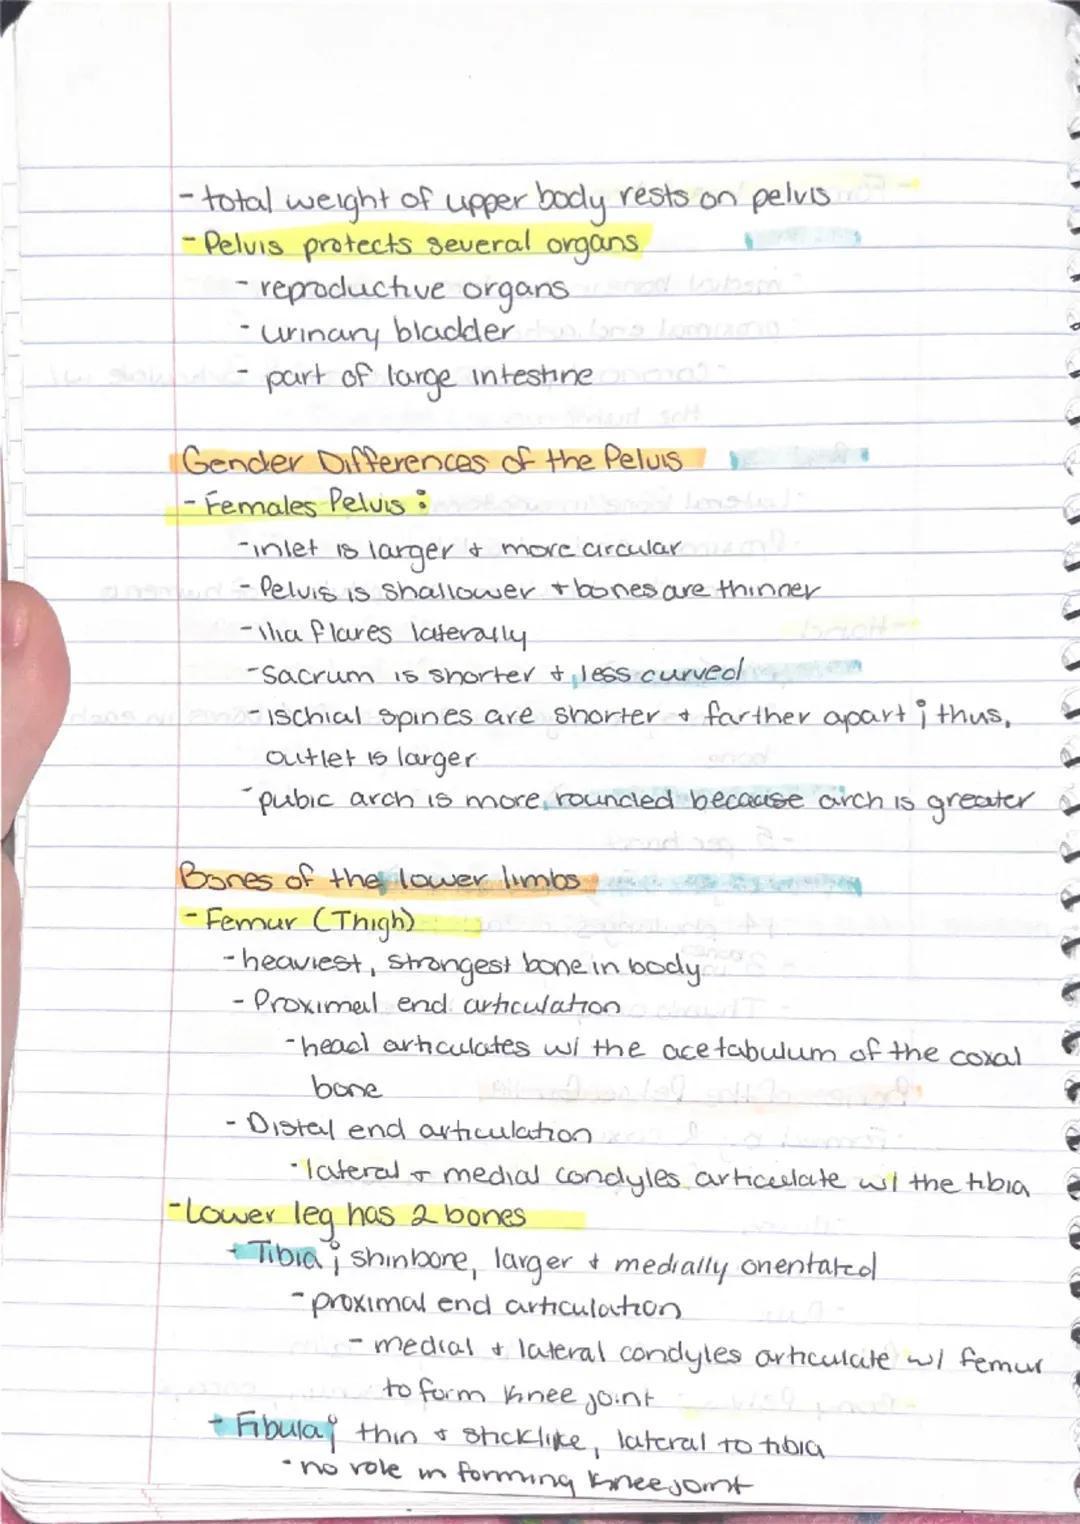 - total weight of upper body rests on pelvis
- Pelvis protects several organs
- reproductive organs
- urinary bladder
- part of large intestine
Gender Differences of the Pelvis
- Females Pelvis :
- inlet is larger + more circular
- Pelvis is shallower + bones are thinner
- ilia flares laterally
- Sacrum is shorter + less curved
- ischial spines are shorter + farther apart ; thus,
outlet is larger
- pubic arch is more rounded because arch is greater
Bones of the lower limbs
- Femur (Thigh)
- heaviest, strongest bone in body
- Proximal end articulation
- head articulates w/ the acetabulum of the coxal
bone
- Distal end articulation
- lateral + medial condyles articulate w/ the tibia
- Lower leg has 2 bones
- Tibia ; shinbone, larger + medially orientated
- proximal end articulation
- medial + lateral condyles articulate w/ femur
to form knee joint
- Fibula ; thin + sticklike, lateral to tibia
- no role in forming knee joint